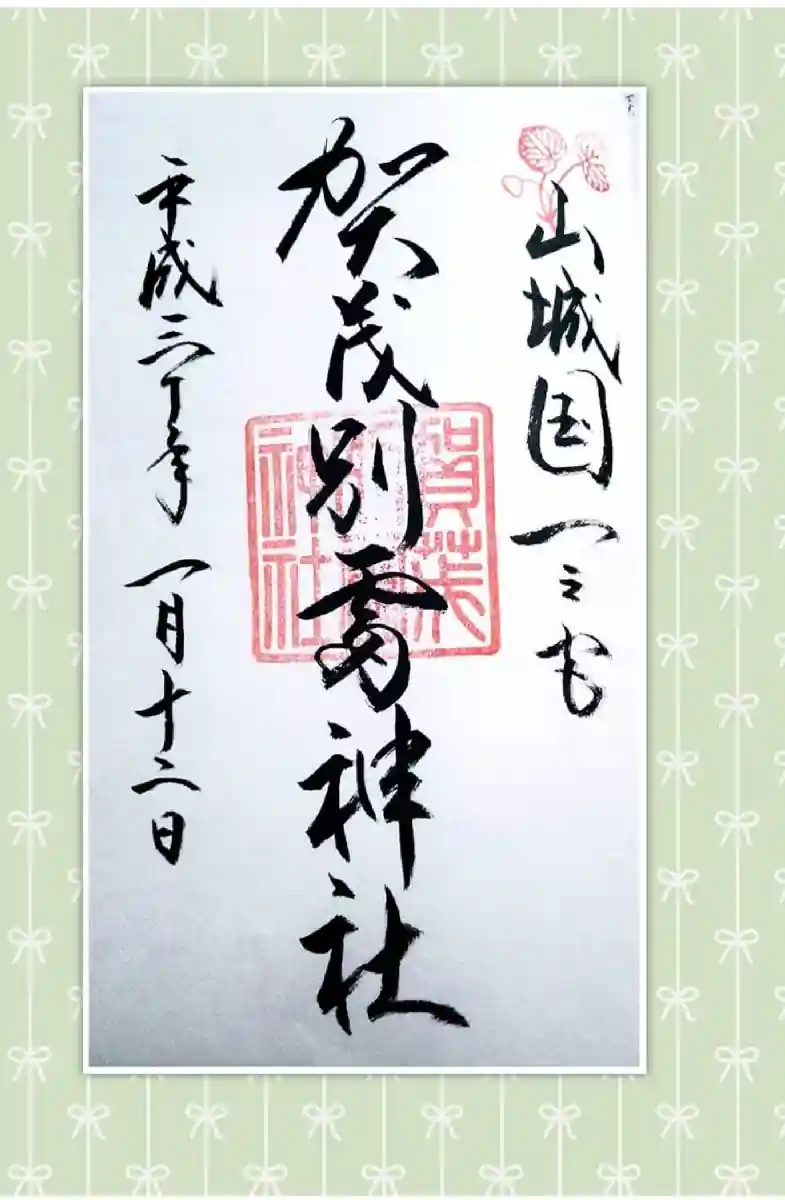 山城国一之宮
賀茂別雷神社
賀茂別雷神社
平成三十年一月十二日